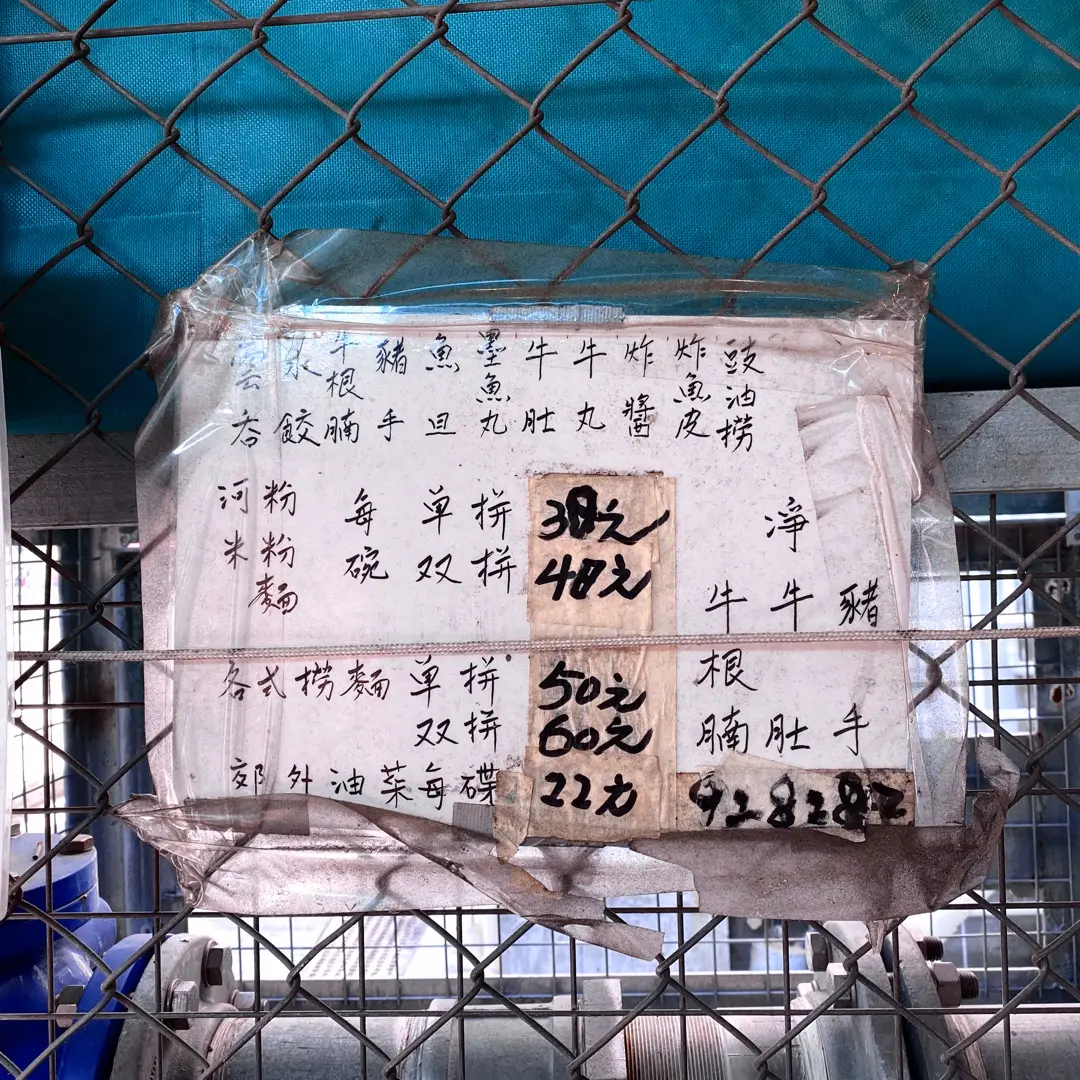 云吞
水餃
牛根腩
豬手
魚旦
墨魚丸
牛肚
牛丸
炸醬
炸魚皮
豉油捞
河粉
米粉
麵
每碗
单拼 38元
双拼 48元
各式捞麵 单拼 50元
双拼 60元
郊外油菜每碟 22元
净
牛根腩
牛肚
豬手
92 82 82